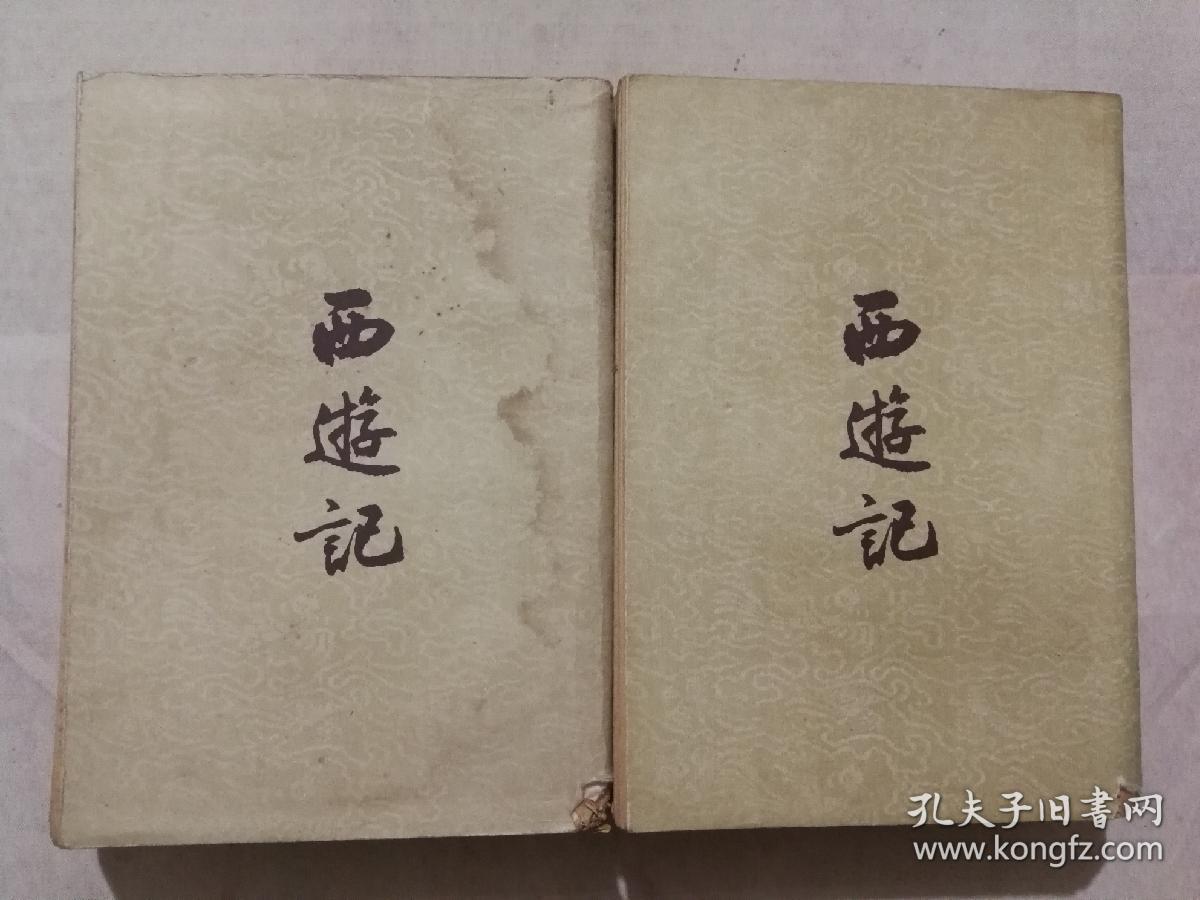 西遊記
西遊記
孔夫子旧書网
www.kongfz.com